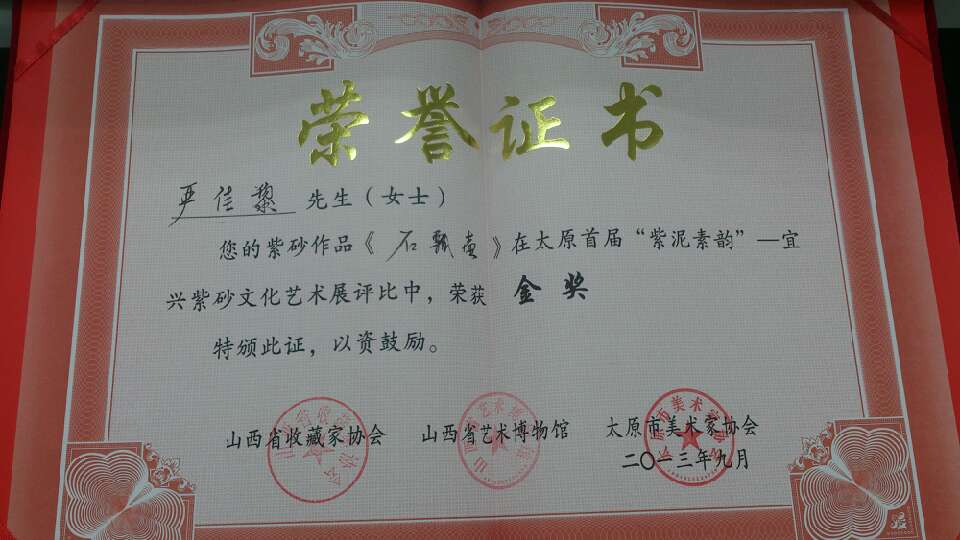 荣誉证书
严佳黎 先生（女士）
您的紫砂作品《石瓢壶》在太原首届“紫泥素韵”—宜
兴紫砂文化艺术展评比中，荣获 金奖
特颁此证，以资鼓励。
山西省收藏家协会 山西省艺术博物馆 太原市美术家协会
二〇一三年九月